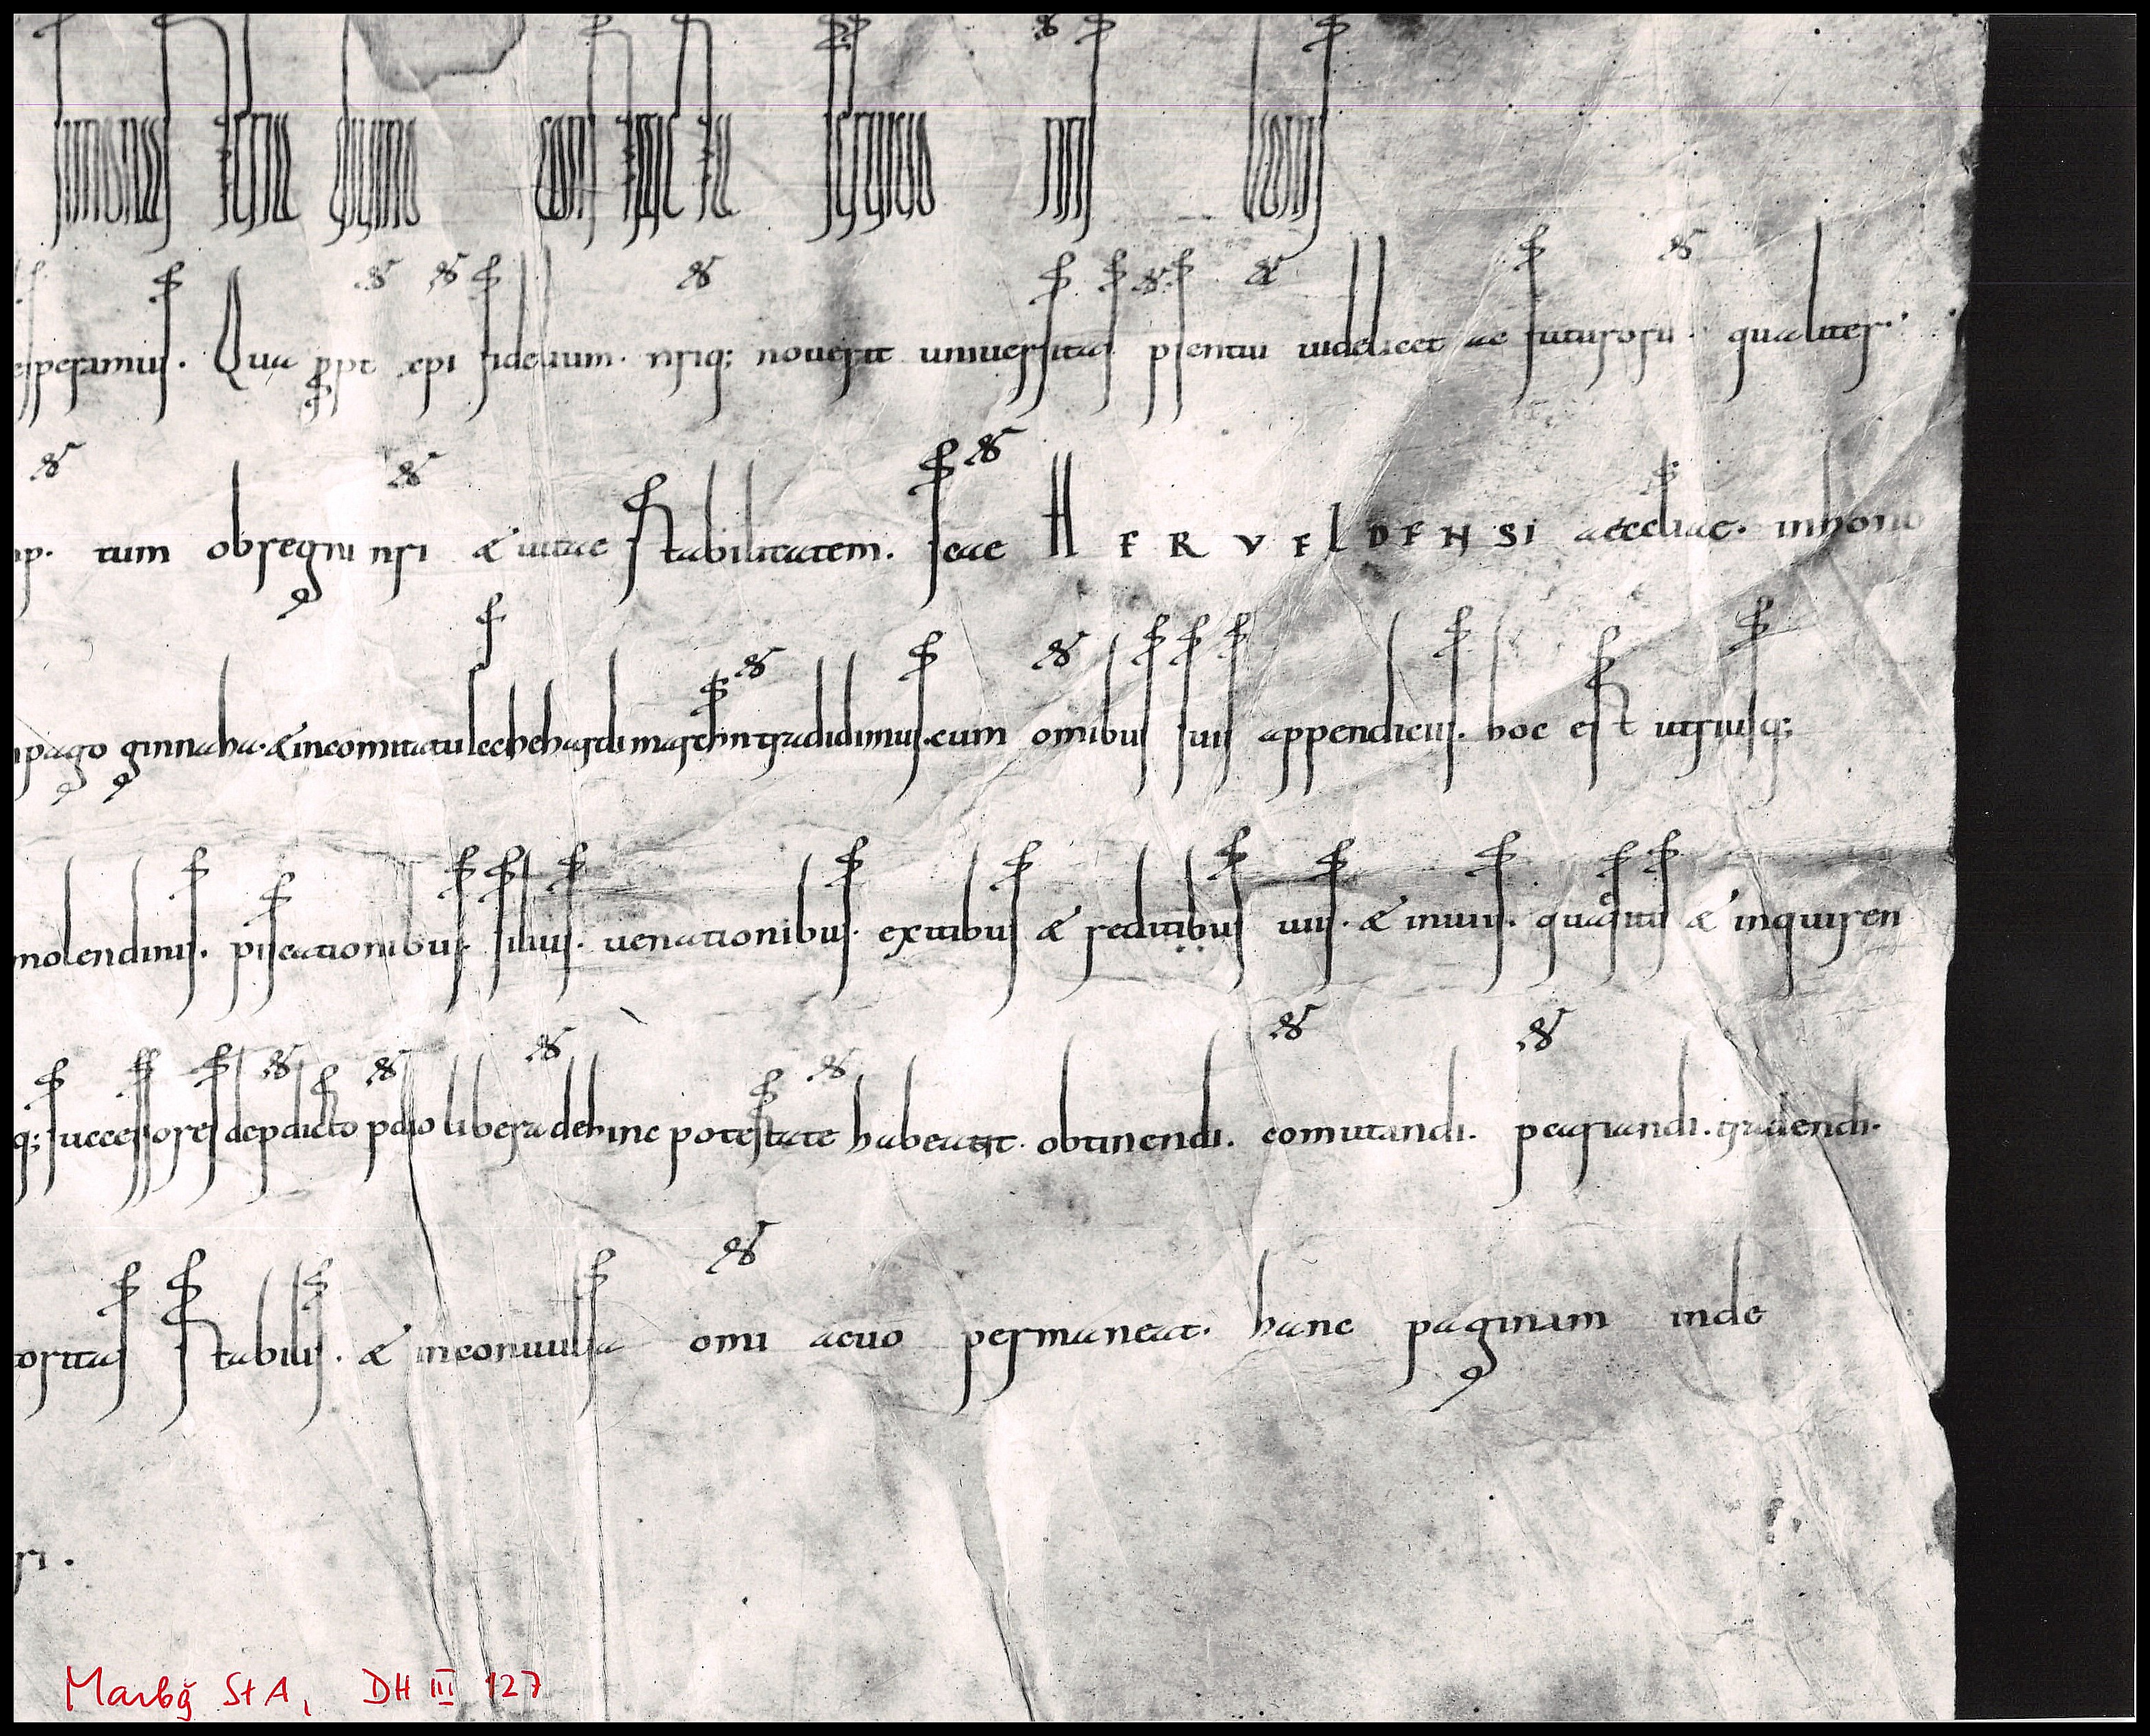 speramus. Qua ppt xpi fidelium. nriq; noverit universitas psentiu videlicet ac futuroru qualiter.
p. tum ob regni nri & vitae stabilitatem. scae HERVELDENSI aeccliae. in hono
pago ginnaha. & in comitatu lechehardi marchin tradidimus. cum omibus suis appendiciis. hoc est utriusq;
molendinis. piscationibus. silvis. venationibus. exitibus & reditibus viis. & inviis. quaesitis & inquiren
q; successores de pdicto pdio libera dehinc potestate habeant. obtinendi. comutandi. pcariandi. tradendi.
toritas stabilis. & inconvulsa omi aevo permaneat. hanc paginam inde
ri.
Marbg StA, DH III 127